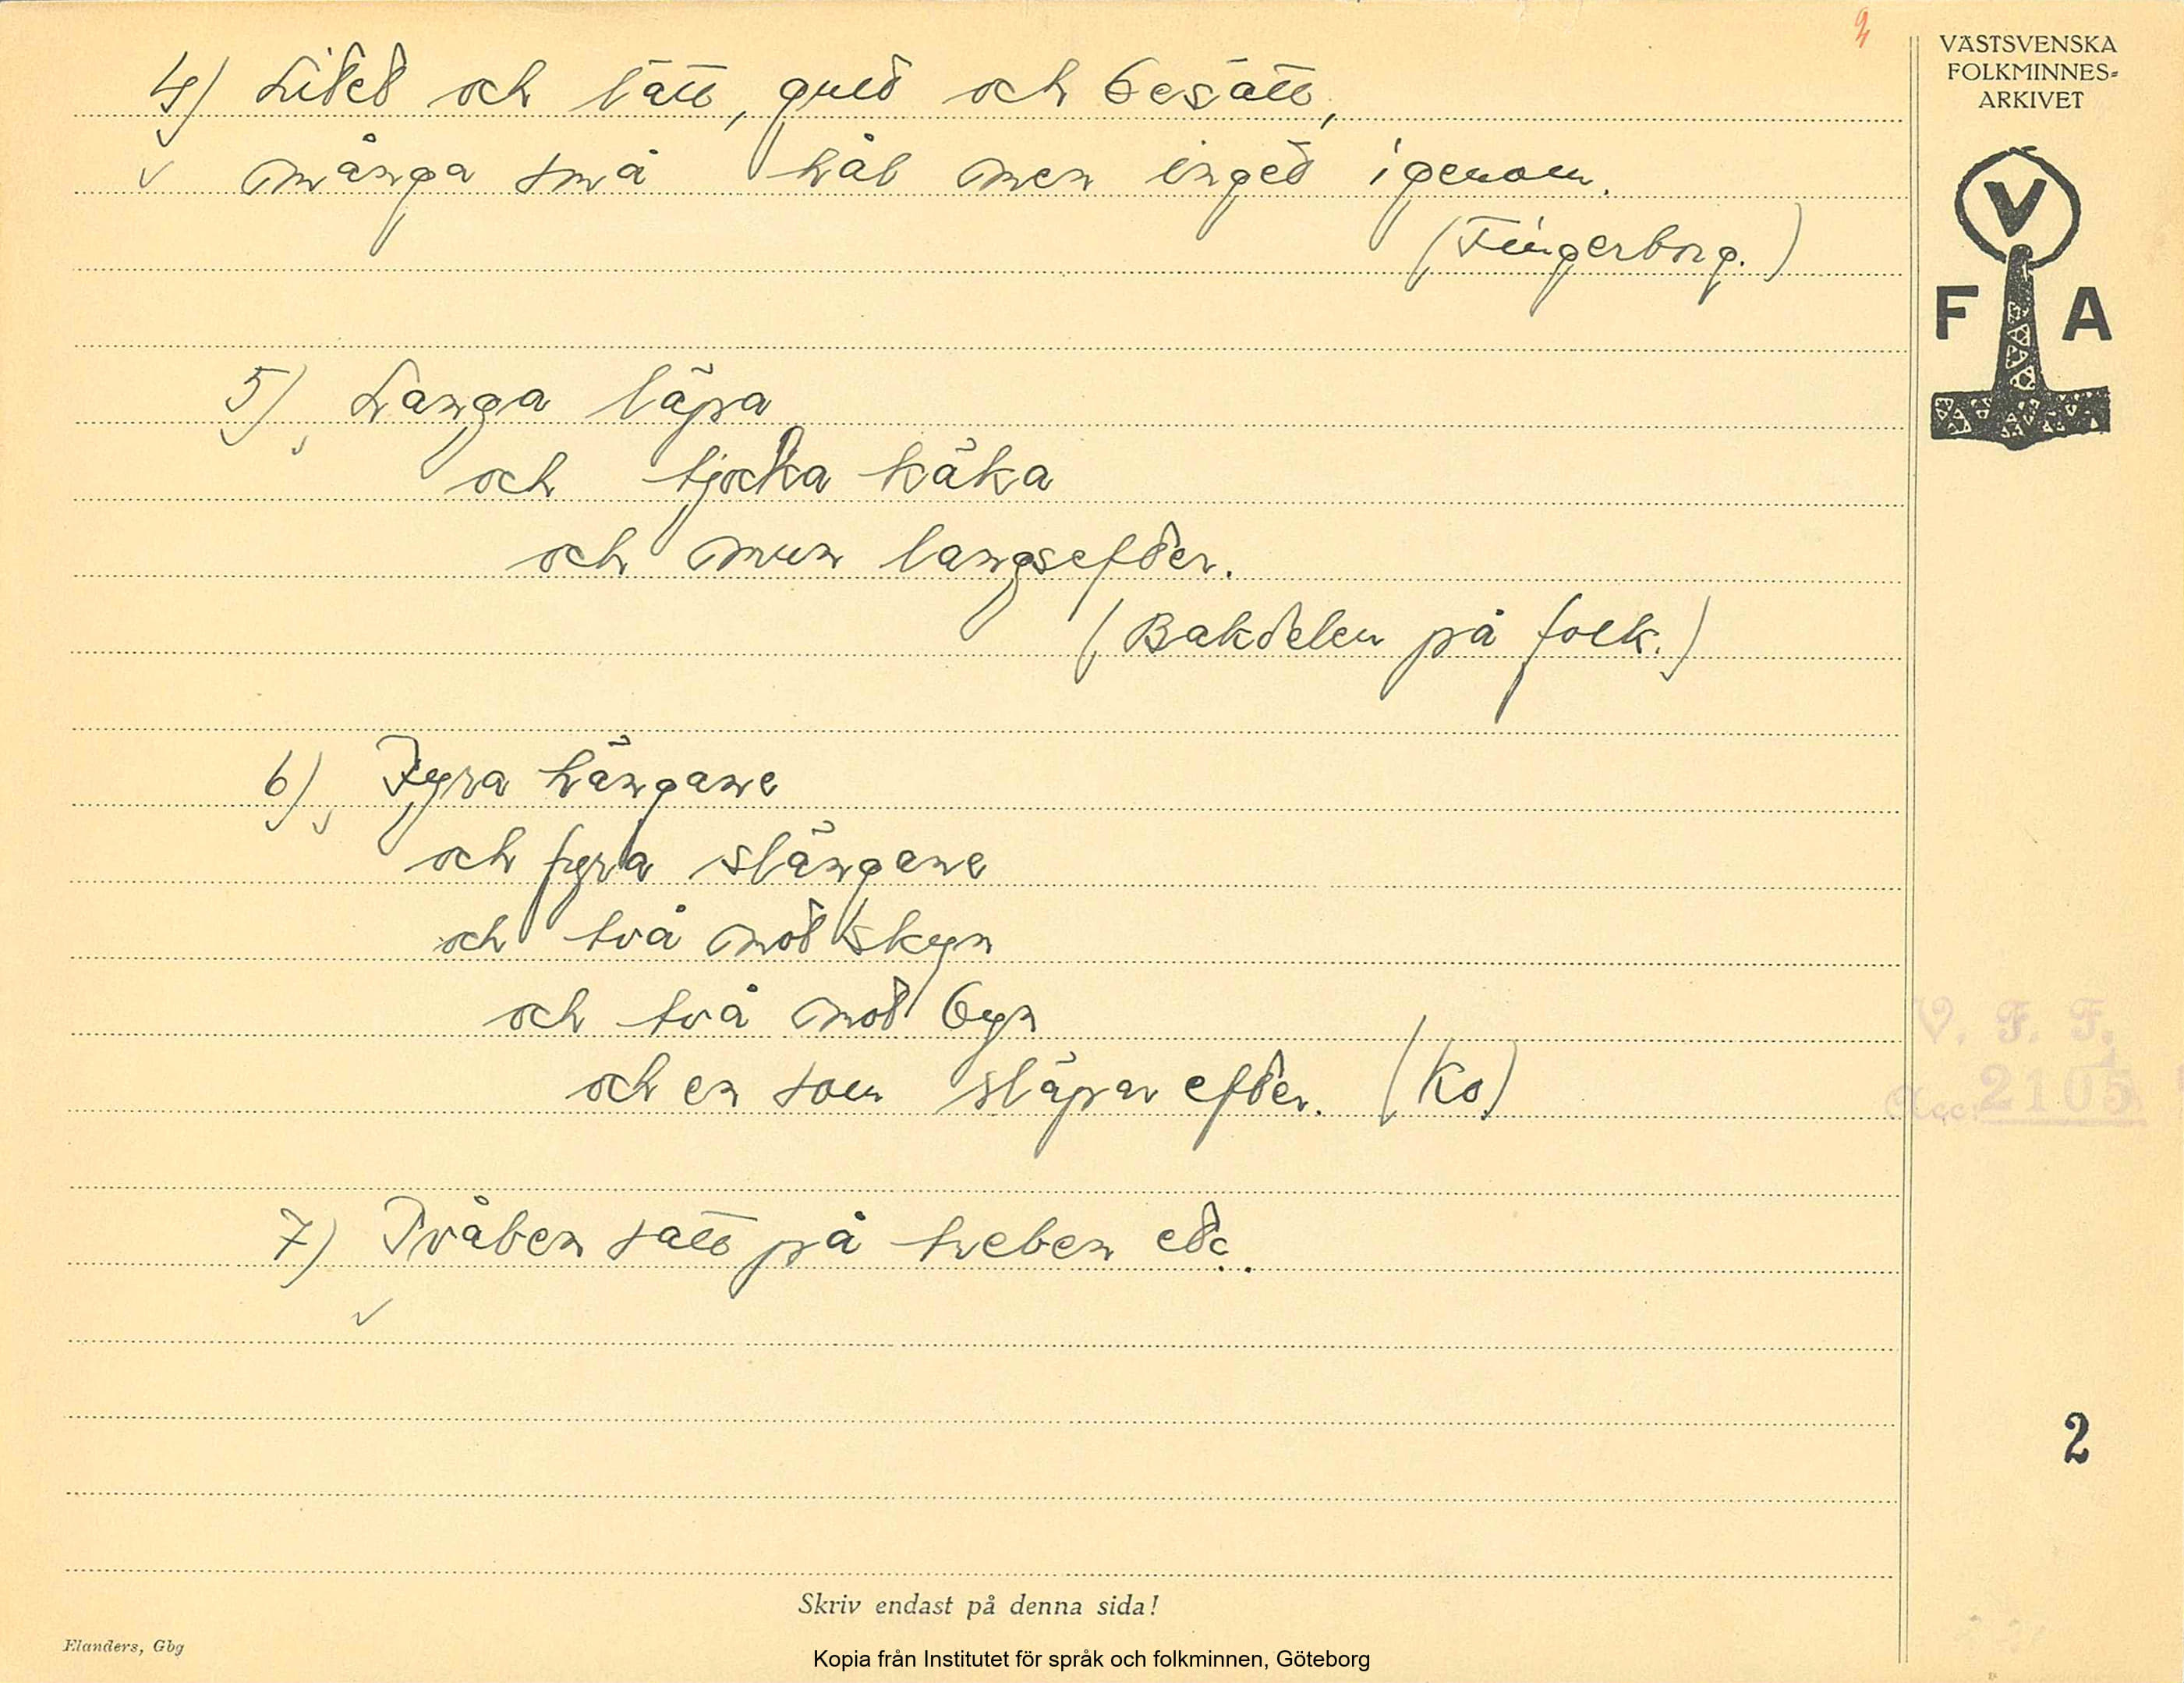 4) Litet och lätt, gult och besätt,
många små hål men inget igenom.
(Fingerborg.)
5) Langa läpa
och tjocka käka
och mun langsefter.
(Bakdelen på folk.)
6) Fyra hängane
och fyra slängane
och två mot skyn
och två mot byn
och en som släpar efter. (Ko)
7) Tvåben satt på treben etc.
VÄSTSVENSKA
FOLKMINNES-
ARKIVET
V
F A
V. F. F.
Acc: 2105
2
Skriv endast på denna sida!
Elanders, Gbg
Kopia från Institutet för språk och folkminnen, Göteborg